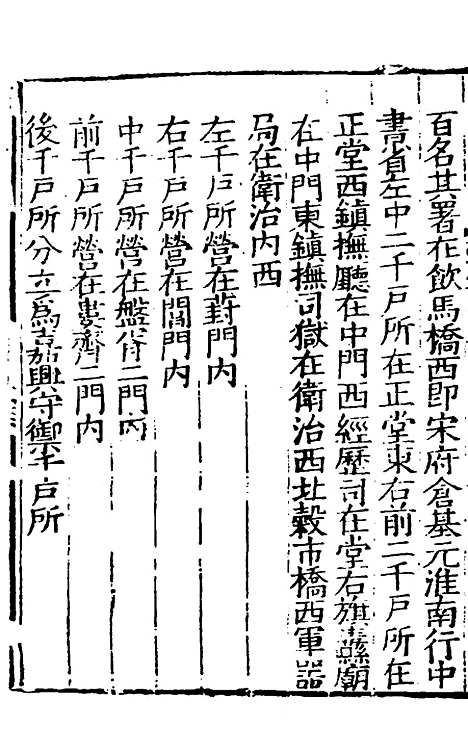 百名其署在飲馬橋西即宋府倉基元淮南行中
書省左中二千戶所在正堂東右前二千戶所在
正堂西鎮撫廳在中門西經歷司在堂右旗纛廟
在中門東鎮撫司獄在衛治西北穀市橋西軍器
局在衛治內西
左千戶所營在葑門內
右千戶所營在閶門內
中千戶所營在盤胥二門內
前千戶所營在婁齊二門內
後千戶所分立為嘉興守禦千戶所